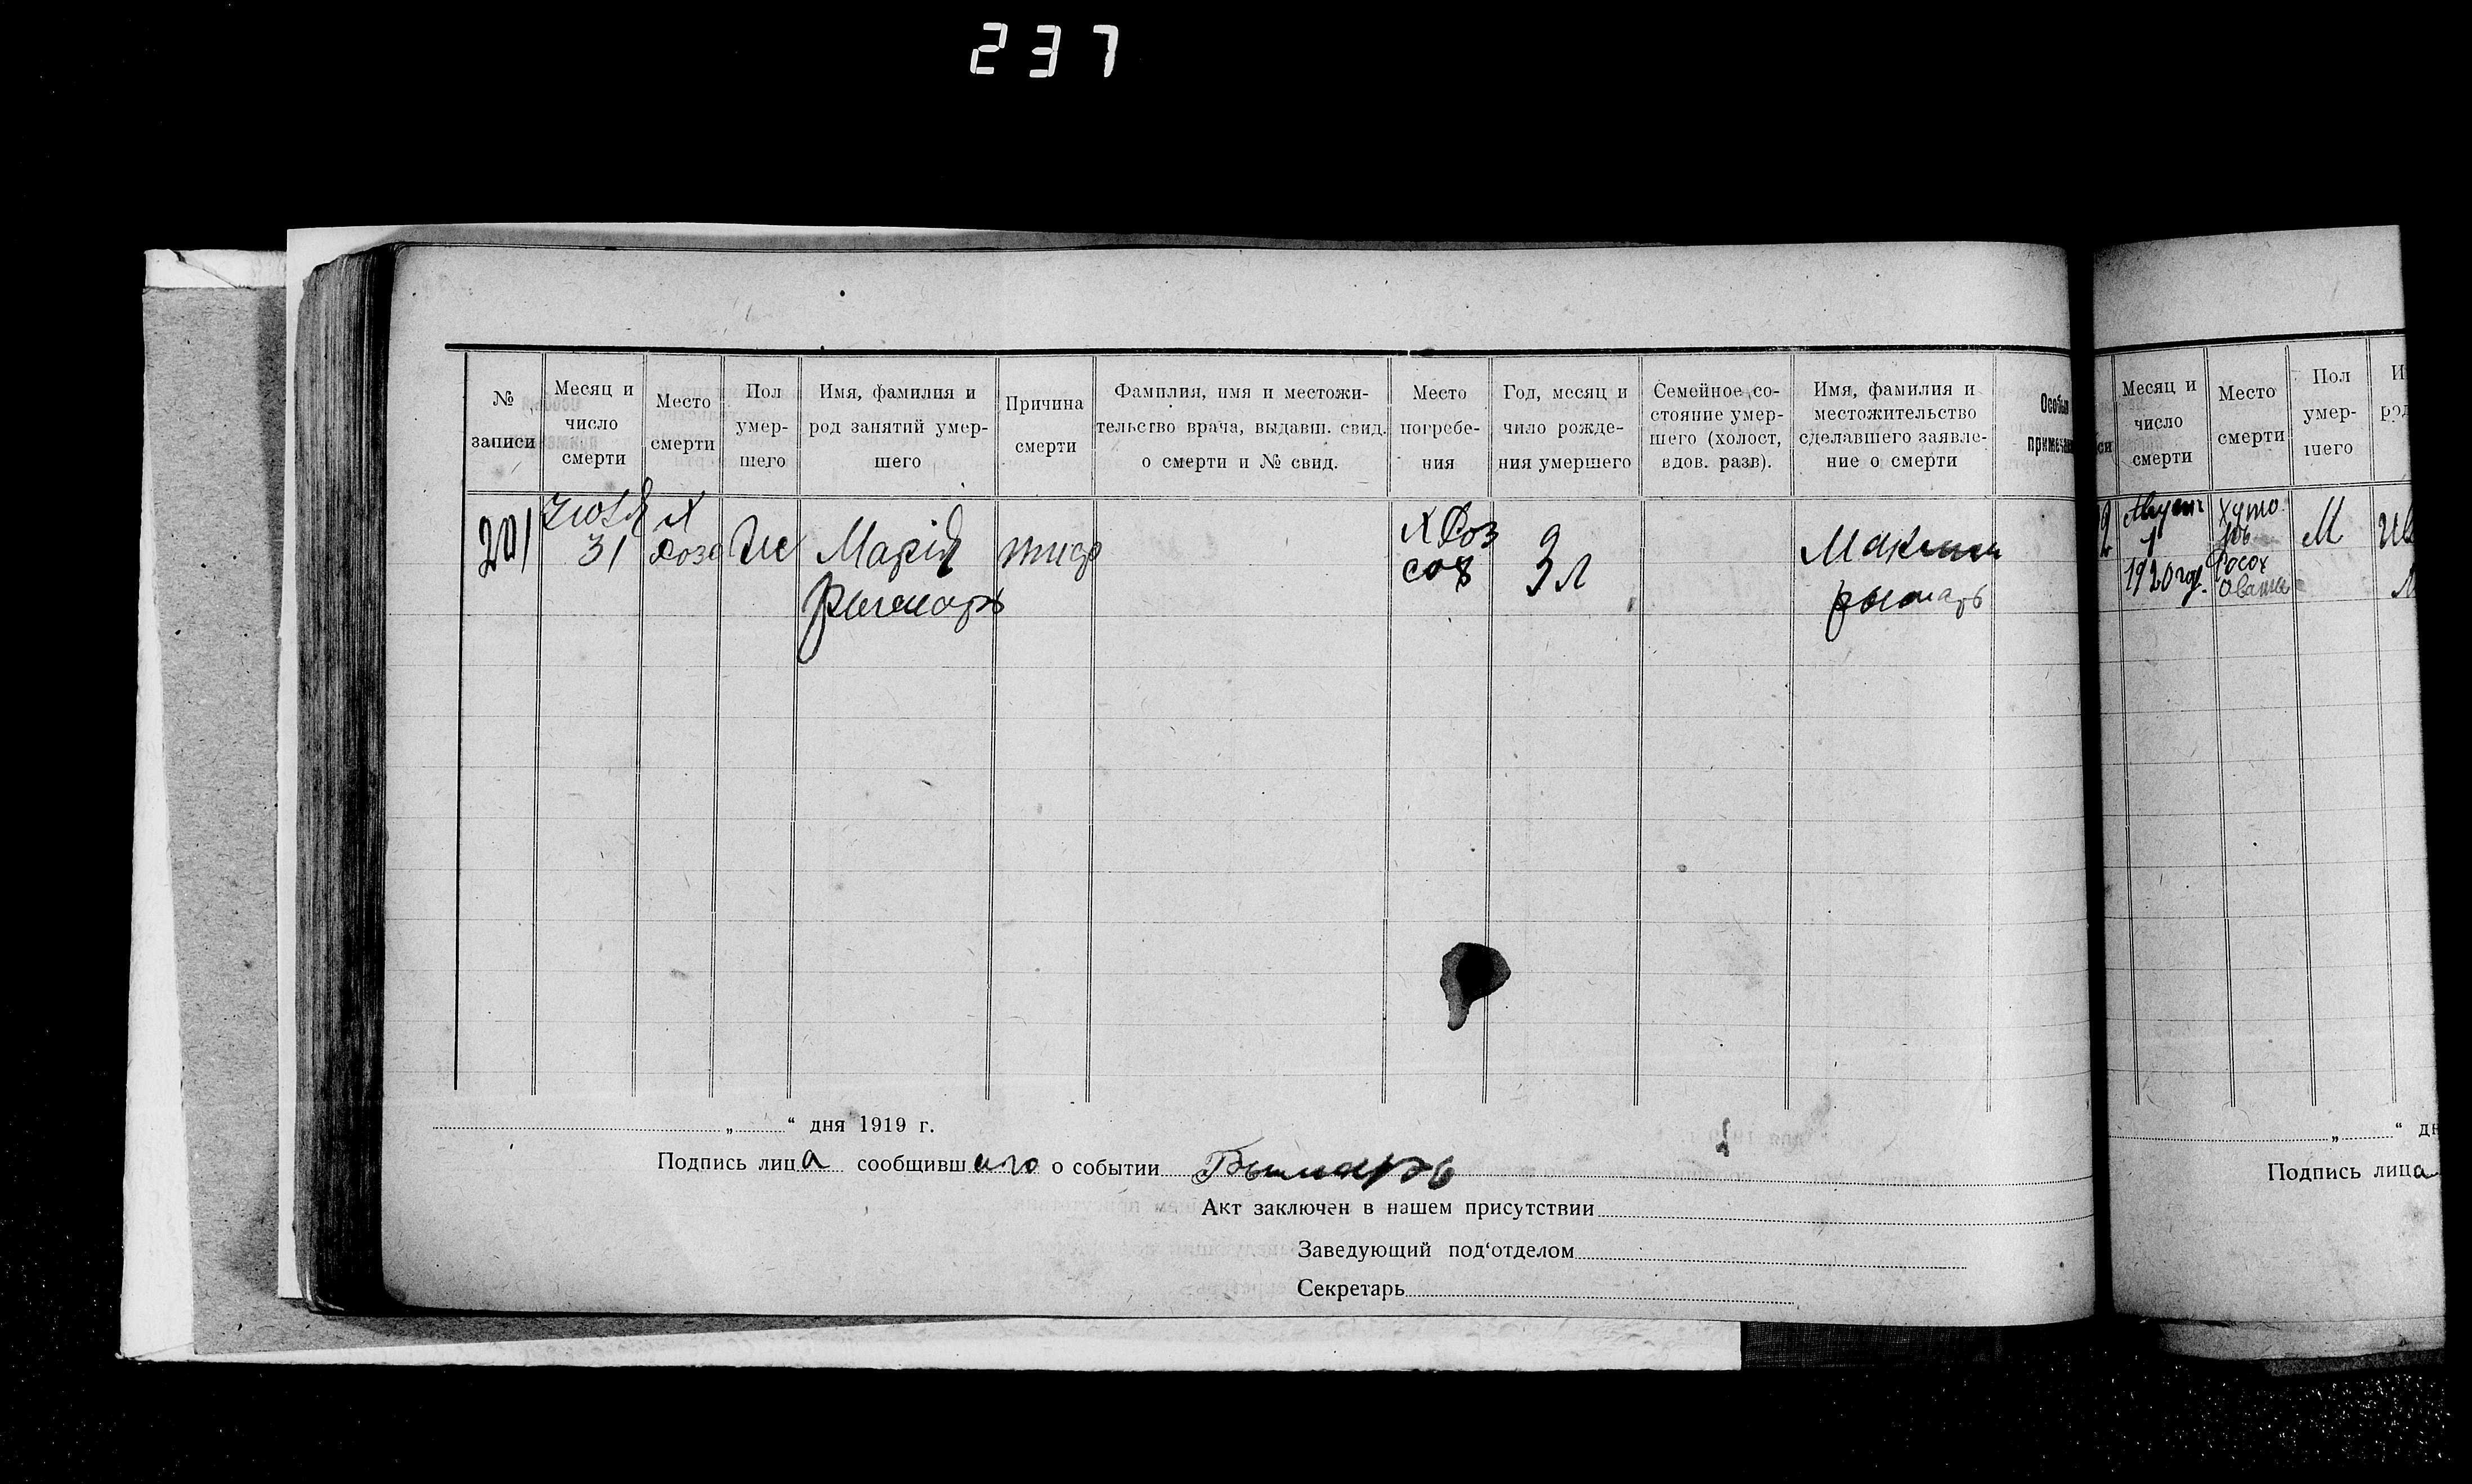 237
№ записи
Месяц и число смерти
Место смерти
Пол умер-шего
Имя, фамилия и род занятий умер-шего
Причина смерти
Фамилия, имя и местожи-тельство врача, выдавш. свид. о смерти и № свид.
Место погребе-ния
Год, месяц и число рожде-ния умершего
Семейное со-стояние умер-шего (холост, вдов. разв).
Имя, фамилия и местожительство сделавшего заявле-ние о смерти
201
31
Марія
Рымарь
тиф
3 л
Максим
рымарь
„ “ дня 1919 г.
Подпись лица сообщившаго о событии
Акт заключен в нашем присутствии
Заведующий под‘отделом
Секретарь
Месяц и число смерти
Место смерти
Пол умер-шего
1
1920 г.
М
Подпись лица